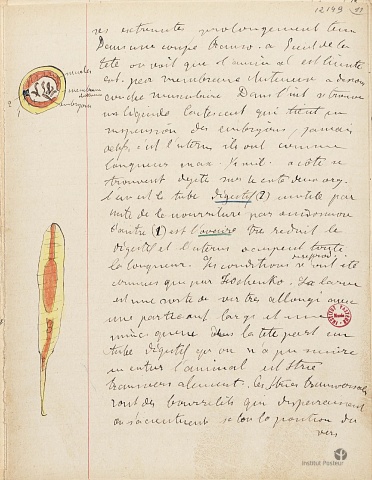 12149
ses extremités prolongement
Dans une coupe transv. à de la
tête on voit que l'animal est limité
ext. par membrane anterieure a dessous
couche musculaire. Dans l'int se trouve
un liquide contenant qui tient en
suspension des embryons, jamais
c'est l'uterus ils ont comme
longueur max. à côté se
trouvent dejeté sur le côté deux org.
l'un est le tube digestif (2) inutile par
suite de la nourriture par endosmose
l'autre (1) est l'ovaire très reduit le
digestif et l'uterus occupent toute
la longueur. Les conditions reprod ont été
connues que par La larve
est une sorte de ver très allongé avec
une partie ant large et une
mince queue dans la tête part un
tube digestif qu'on n'a pu suivre
en entier l'animal est strié
transversalement. les stries transversales
sont des bourrelets qui disparaissent
ou s'accentuent selon la position du
vers
muscles
membrane
embryons
2
1
INSTITUT PASTEUR
Musée
Institut Pasteur